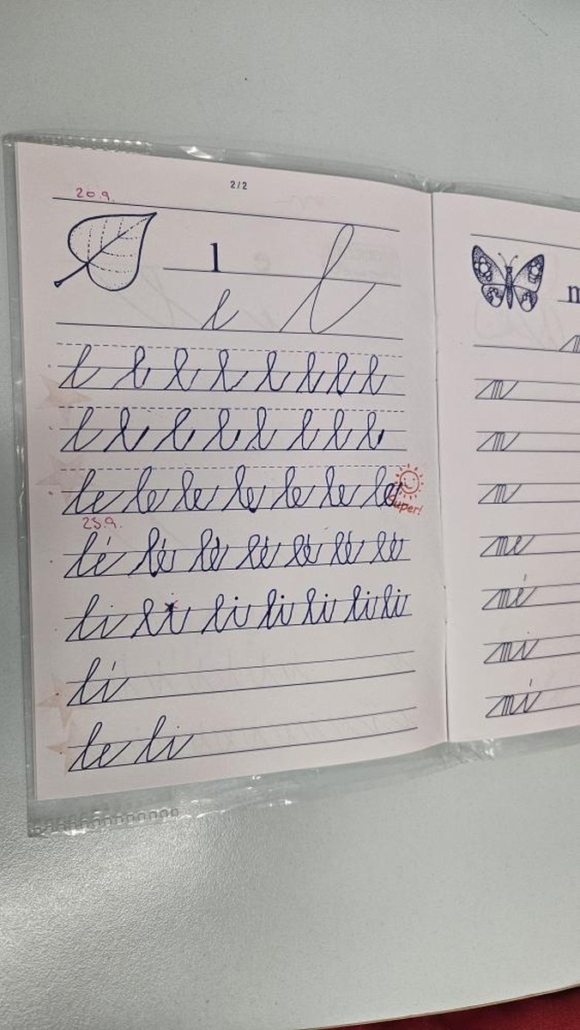 2/2
20.9.
l
l l
l l l l l l l l
l l l l l l l l
le le le le le le le
super!
25.9.
lé lé lé lé lé lé lé
li li li li li li li
lí
le li
m
m
m
m
m
me
mé
mi
mí